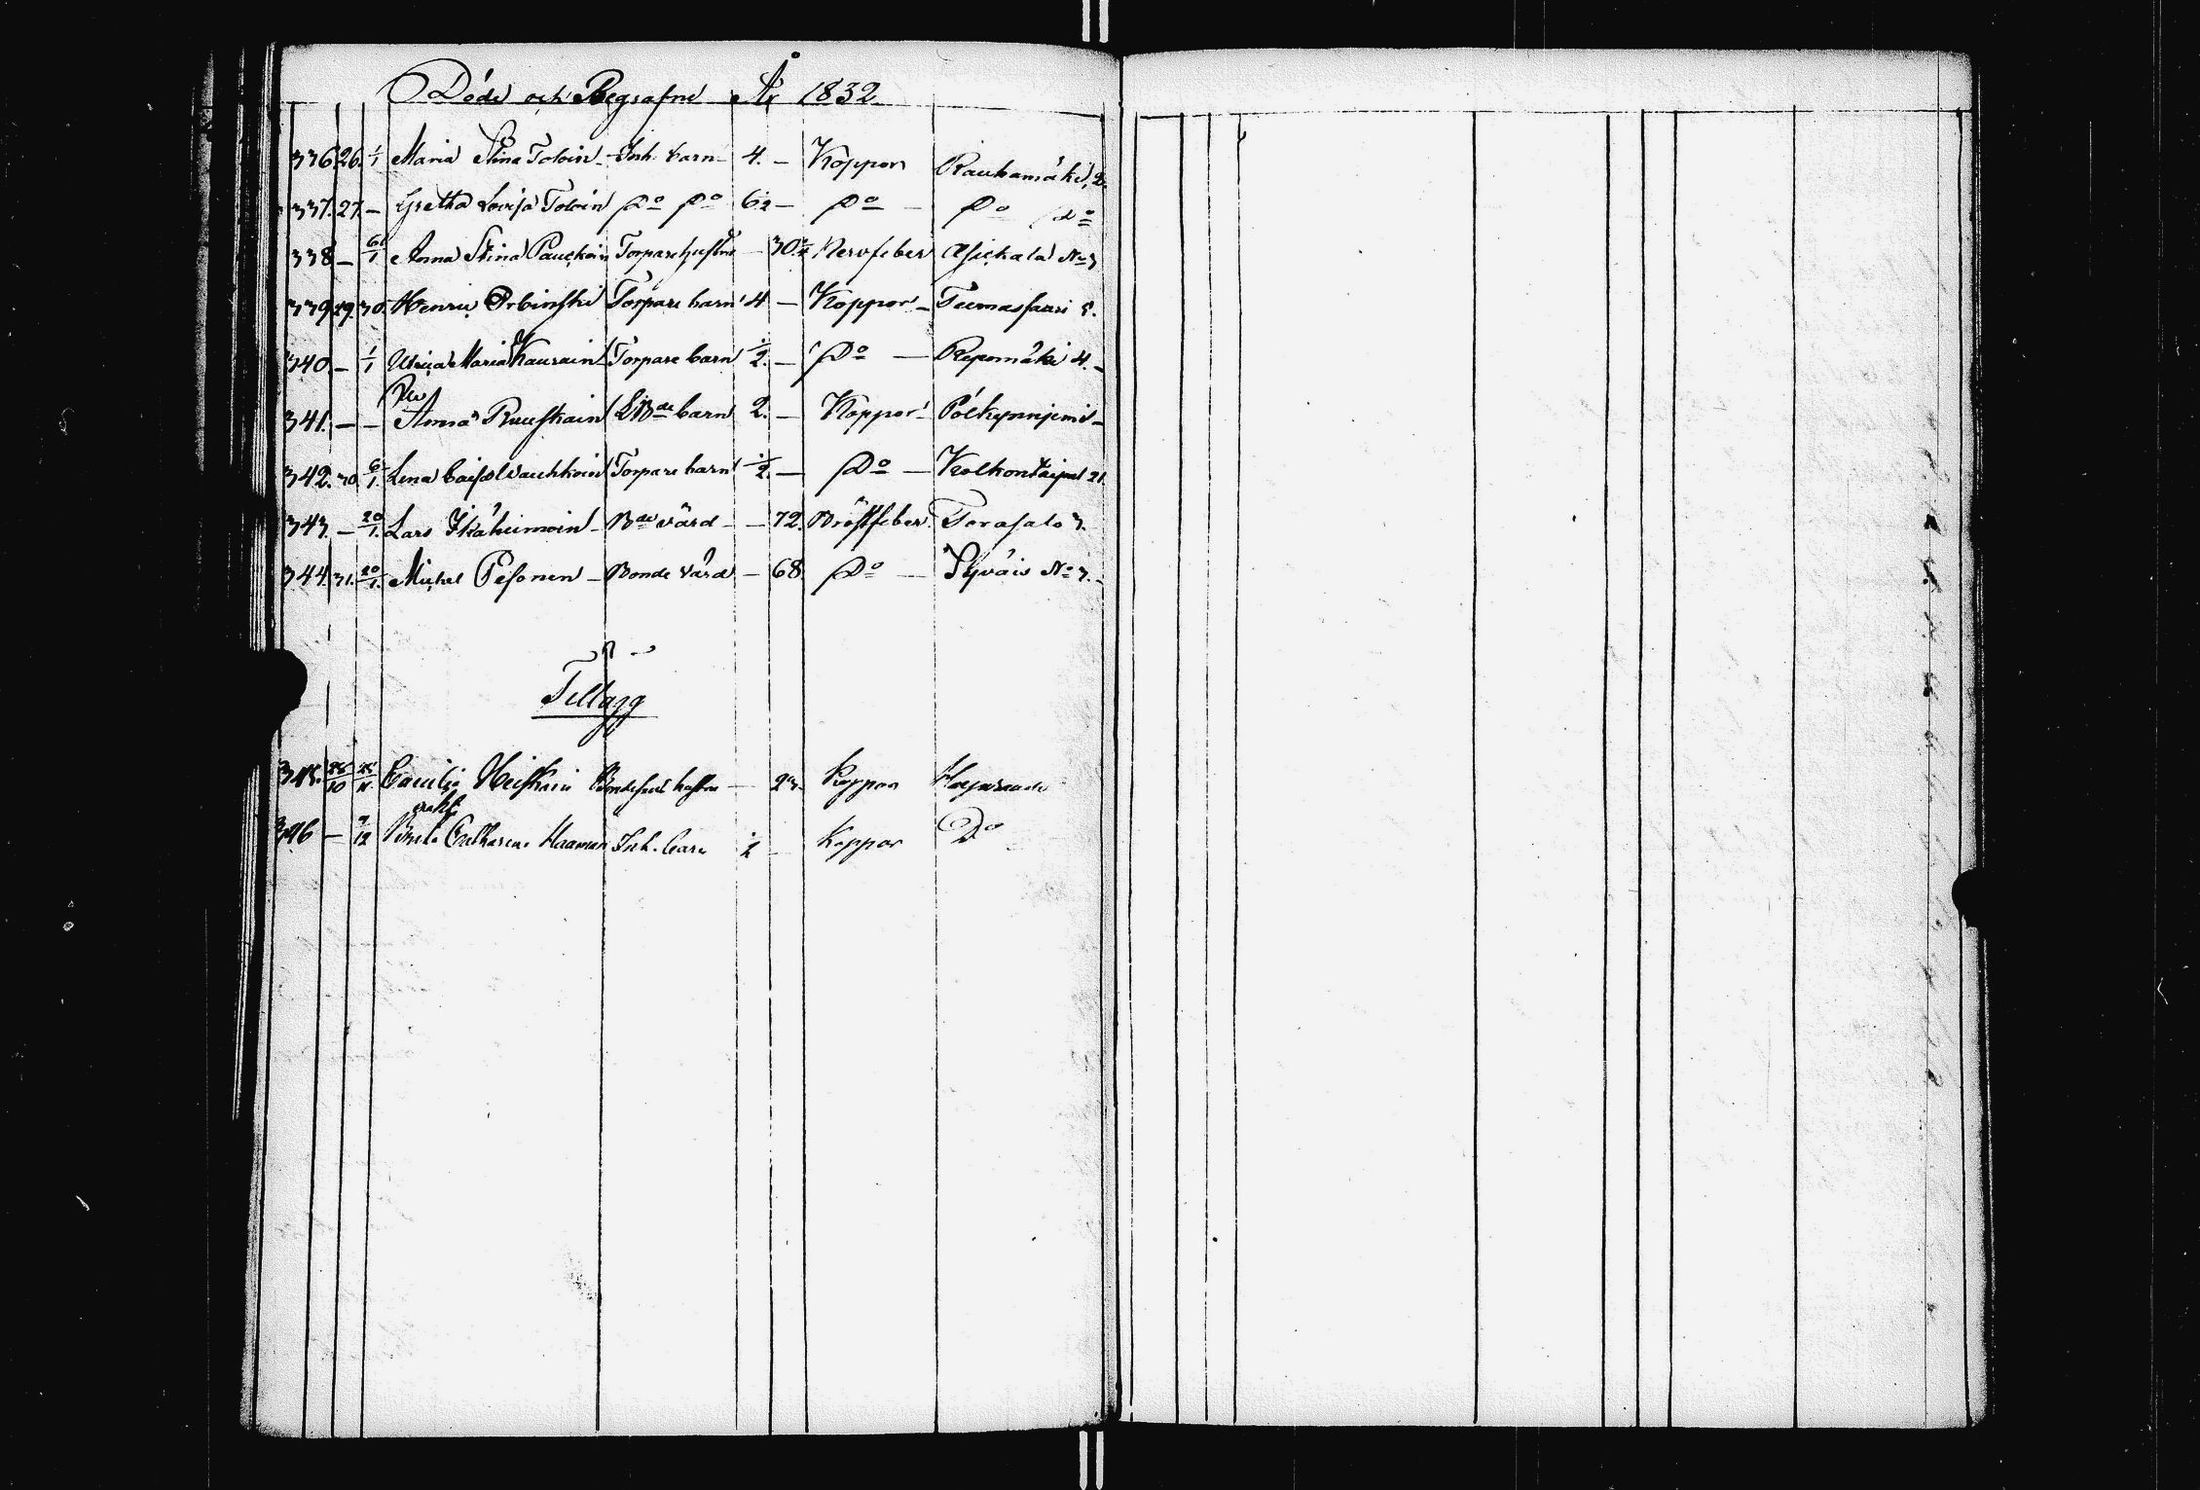 Döde och Begrafne År 1832.
336 26. 1/1 Maria Stina Toloin - Inh. barn - 4. - Koppor Rauhamäki, 2.
337. 27. - Gretha Lovisa Toloin Do Do 6 1/2 - Do - Do Do
338 - 6/1 Anna Stina Pauckoin Torpare hustru - 30 3/4 Nervfeber Asickala No 3
339 29. 30. Henric Orbinski Torpare barn 4 - Koppor - Tuomassaari 5.
340 - 1/1 Ulrica Maria Kaurain Torpare barn 1/2. - Do - Repomäki 4. -
341. - - Anna Ruuskain barn 2. - Koppor -
342. 30 6/1. Lena Caisa Wauhkoin Torpare barn 1/2. - Do - Kolkontaipal 21.
343. - 20/1. Lars Ikäheimoin - Bde värd - - 72. Bröstfeber. Torasalo 3. -
344. 31. 20/1. Michel Pesonen - Bonde värd - 68. Do - Syväis No 3. -
Tillägg
345. 28/10 25/11. Caecilia Heiskain hustru - 23. Koppor
346 - 9/12 Catharina Haaman Inh. barn 1/2 - Koppor Do